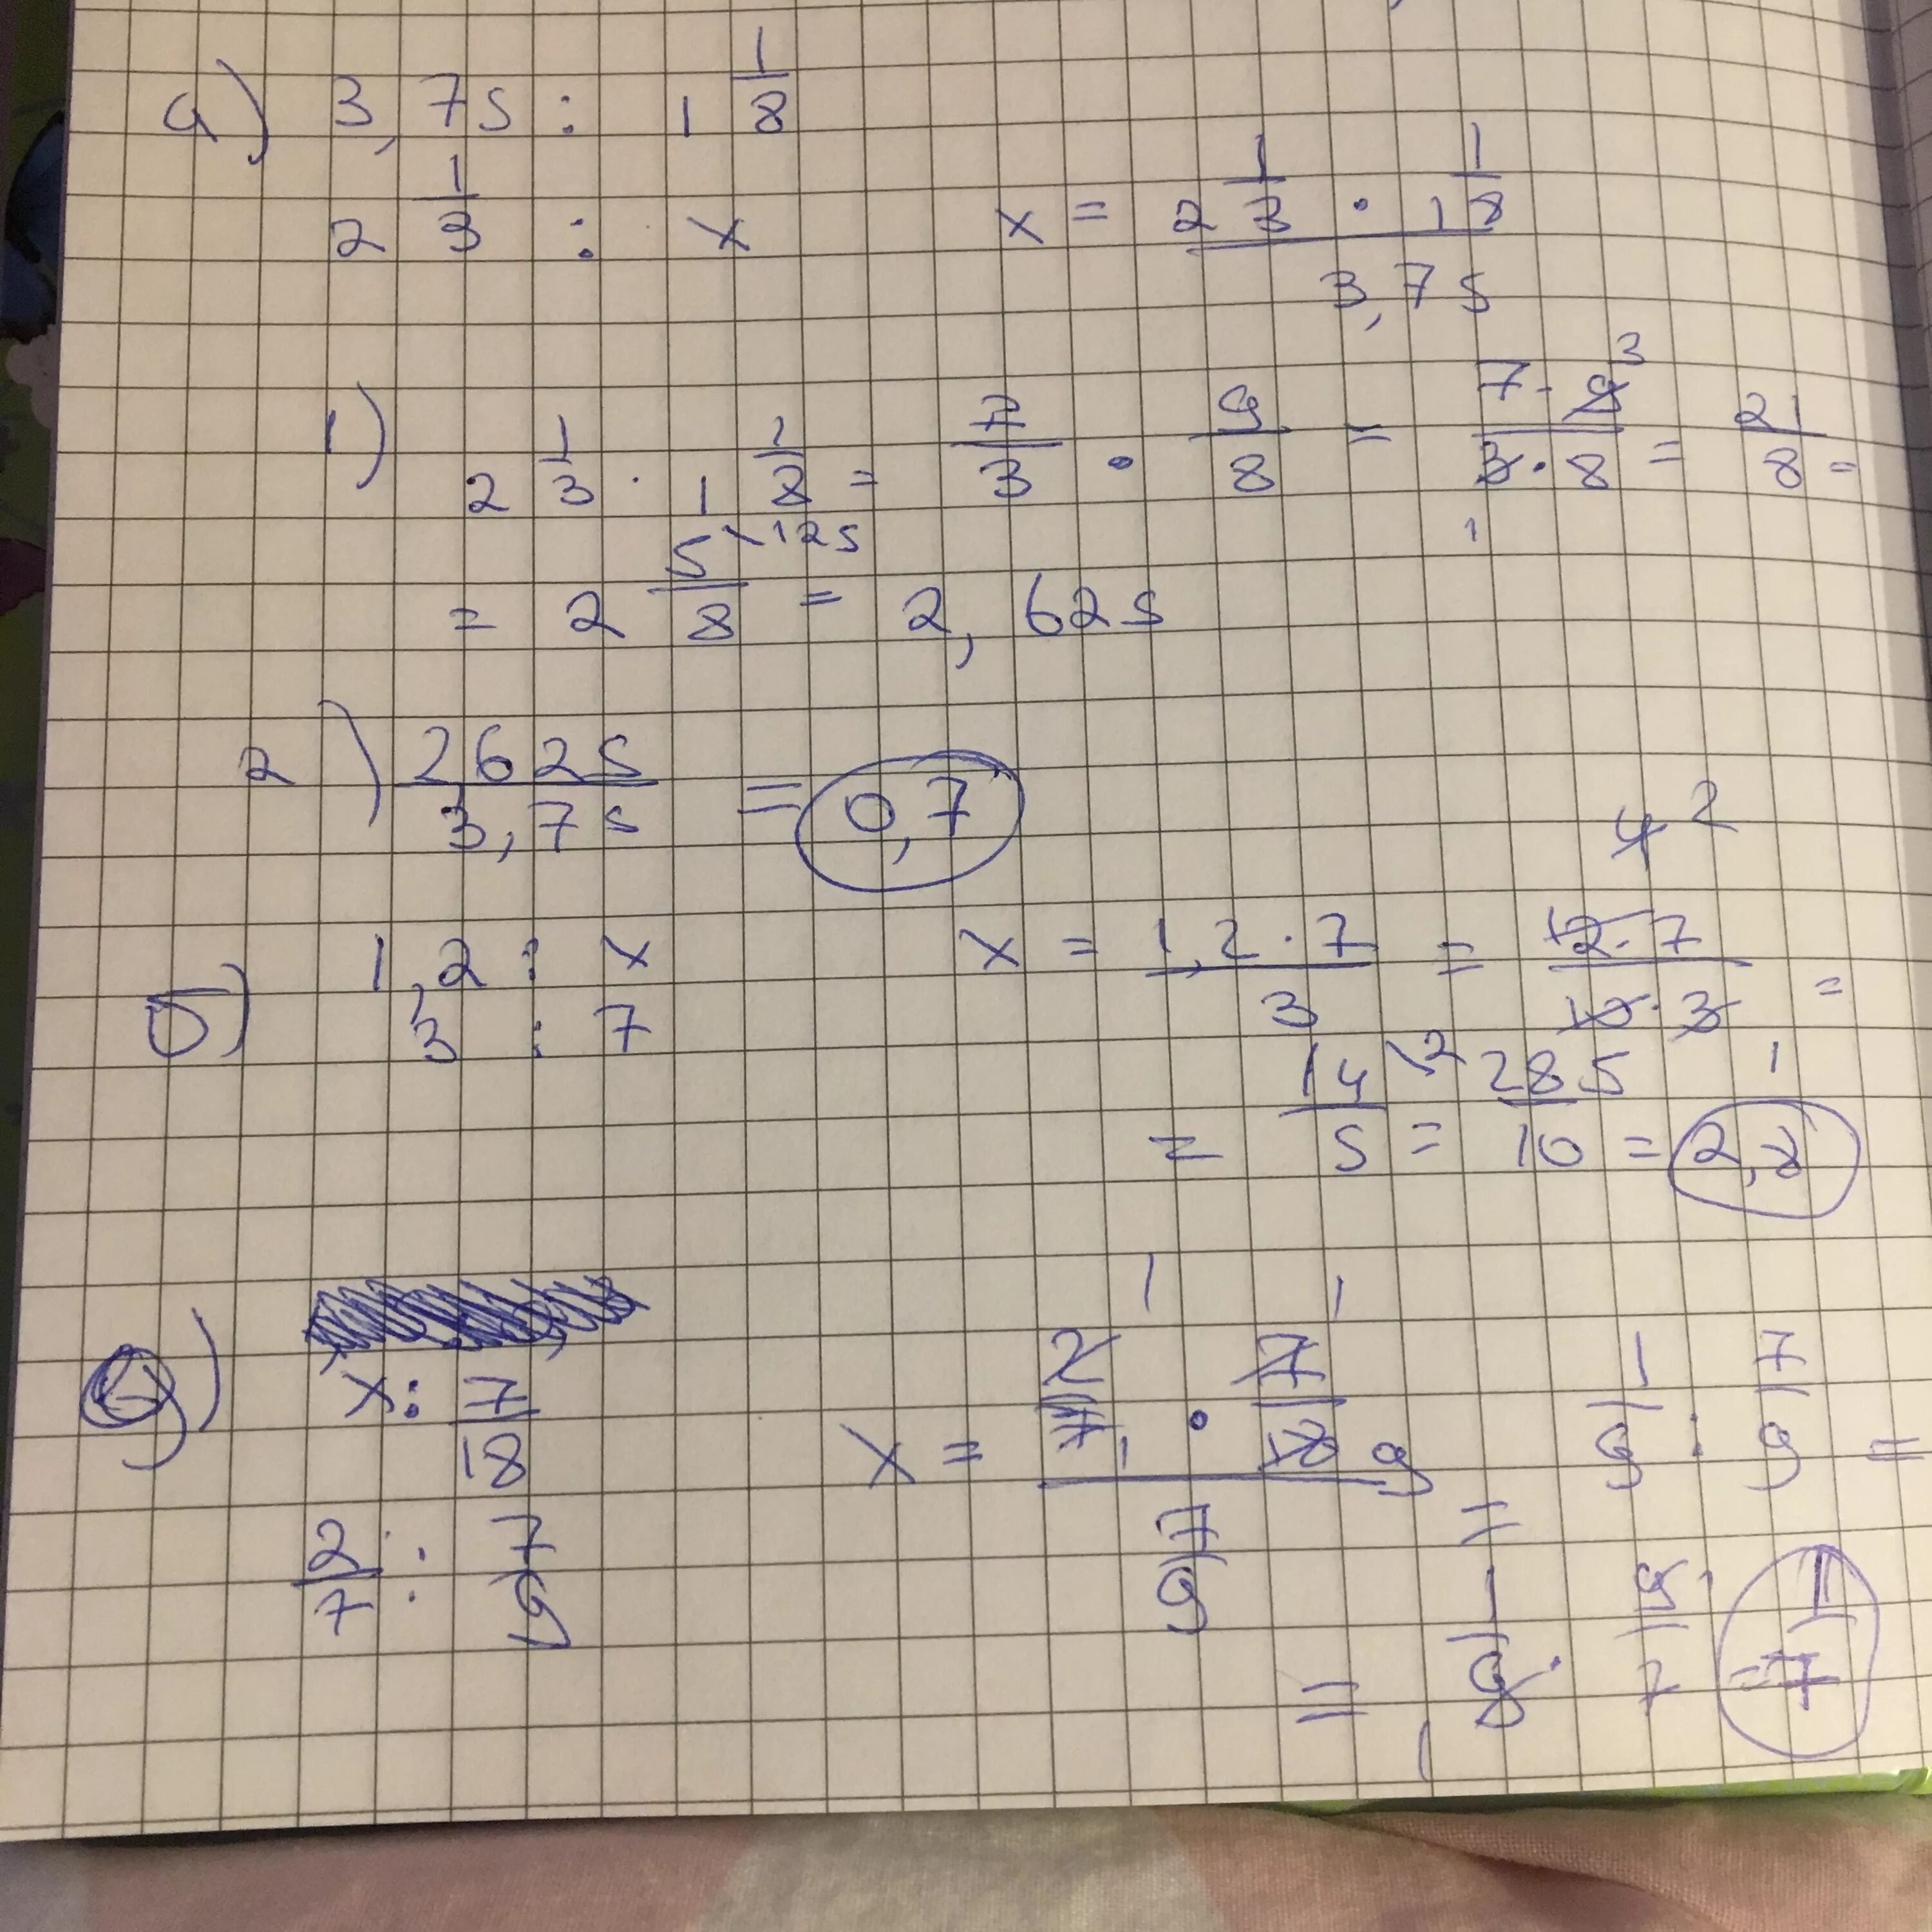 а) 3,75 : 1 1/8
2 1/3 : x x = (2 1/3 · 1 1/8) / 3,75
1) 2 1/3 · 1 1/8 = 7/3 · 9/8 = (7 · 9 3) / (3 · 8) 1 = 21/8 =
= 2 5/8 \125 = 2,625
2) 2625 / 3,75 = 0,7
4 2
б) 1,2 : x x = (1,2 · 7) / 3 = (12 · 7) / (10 · 3) =
3 : 7 5 1
= 14/5 \2 = 28/10 = 2,8
1 1
x : 7/18 x = (2/7 1 · 7/18 9) / (7/9) = 1/9 : 7/9 =
2/7 : 7/9
= 1/9 · 9/7 = 1/7
1